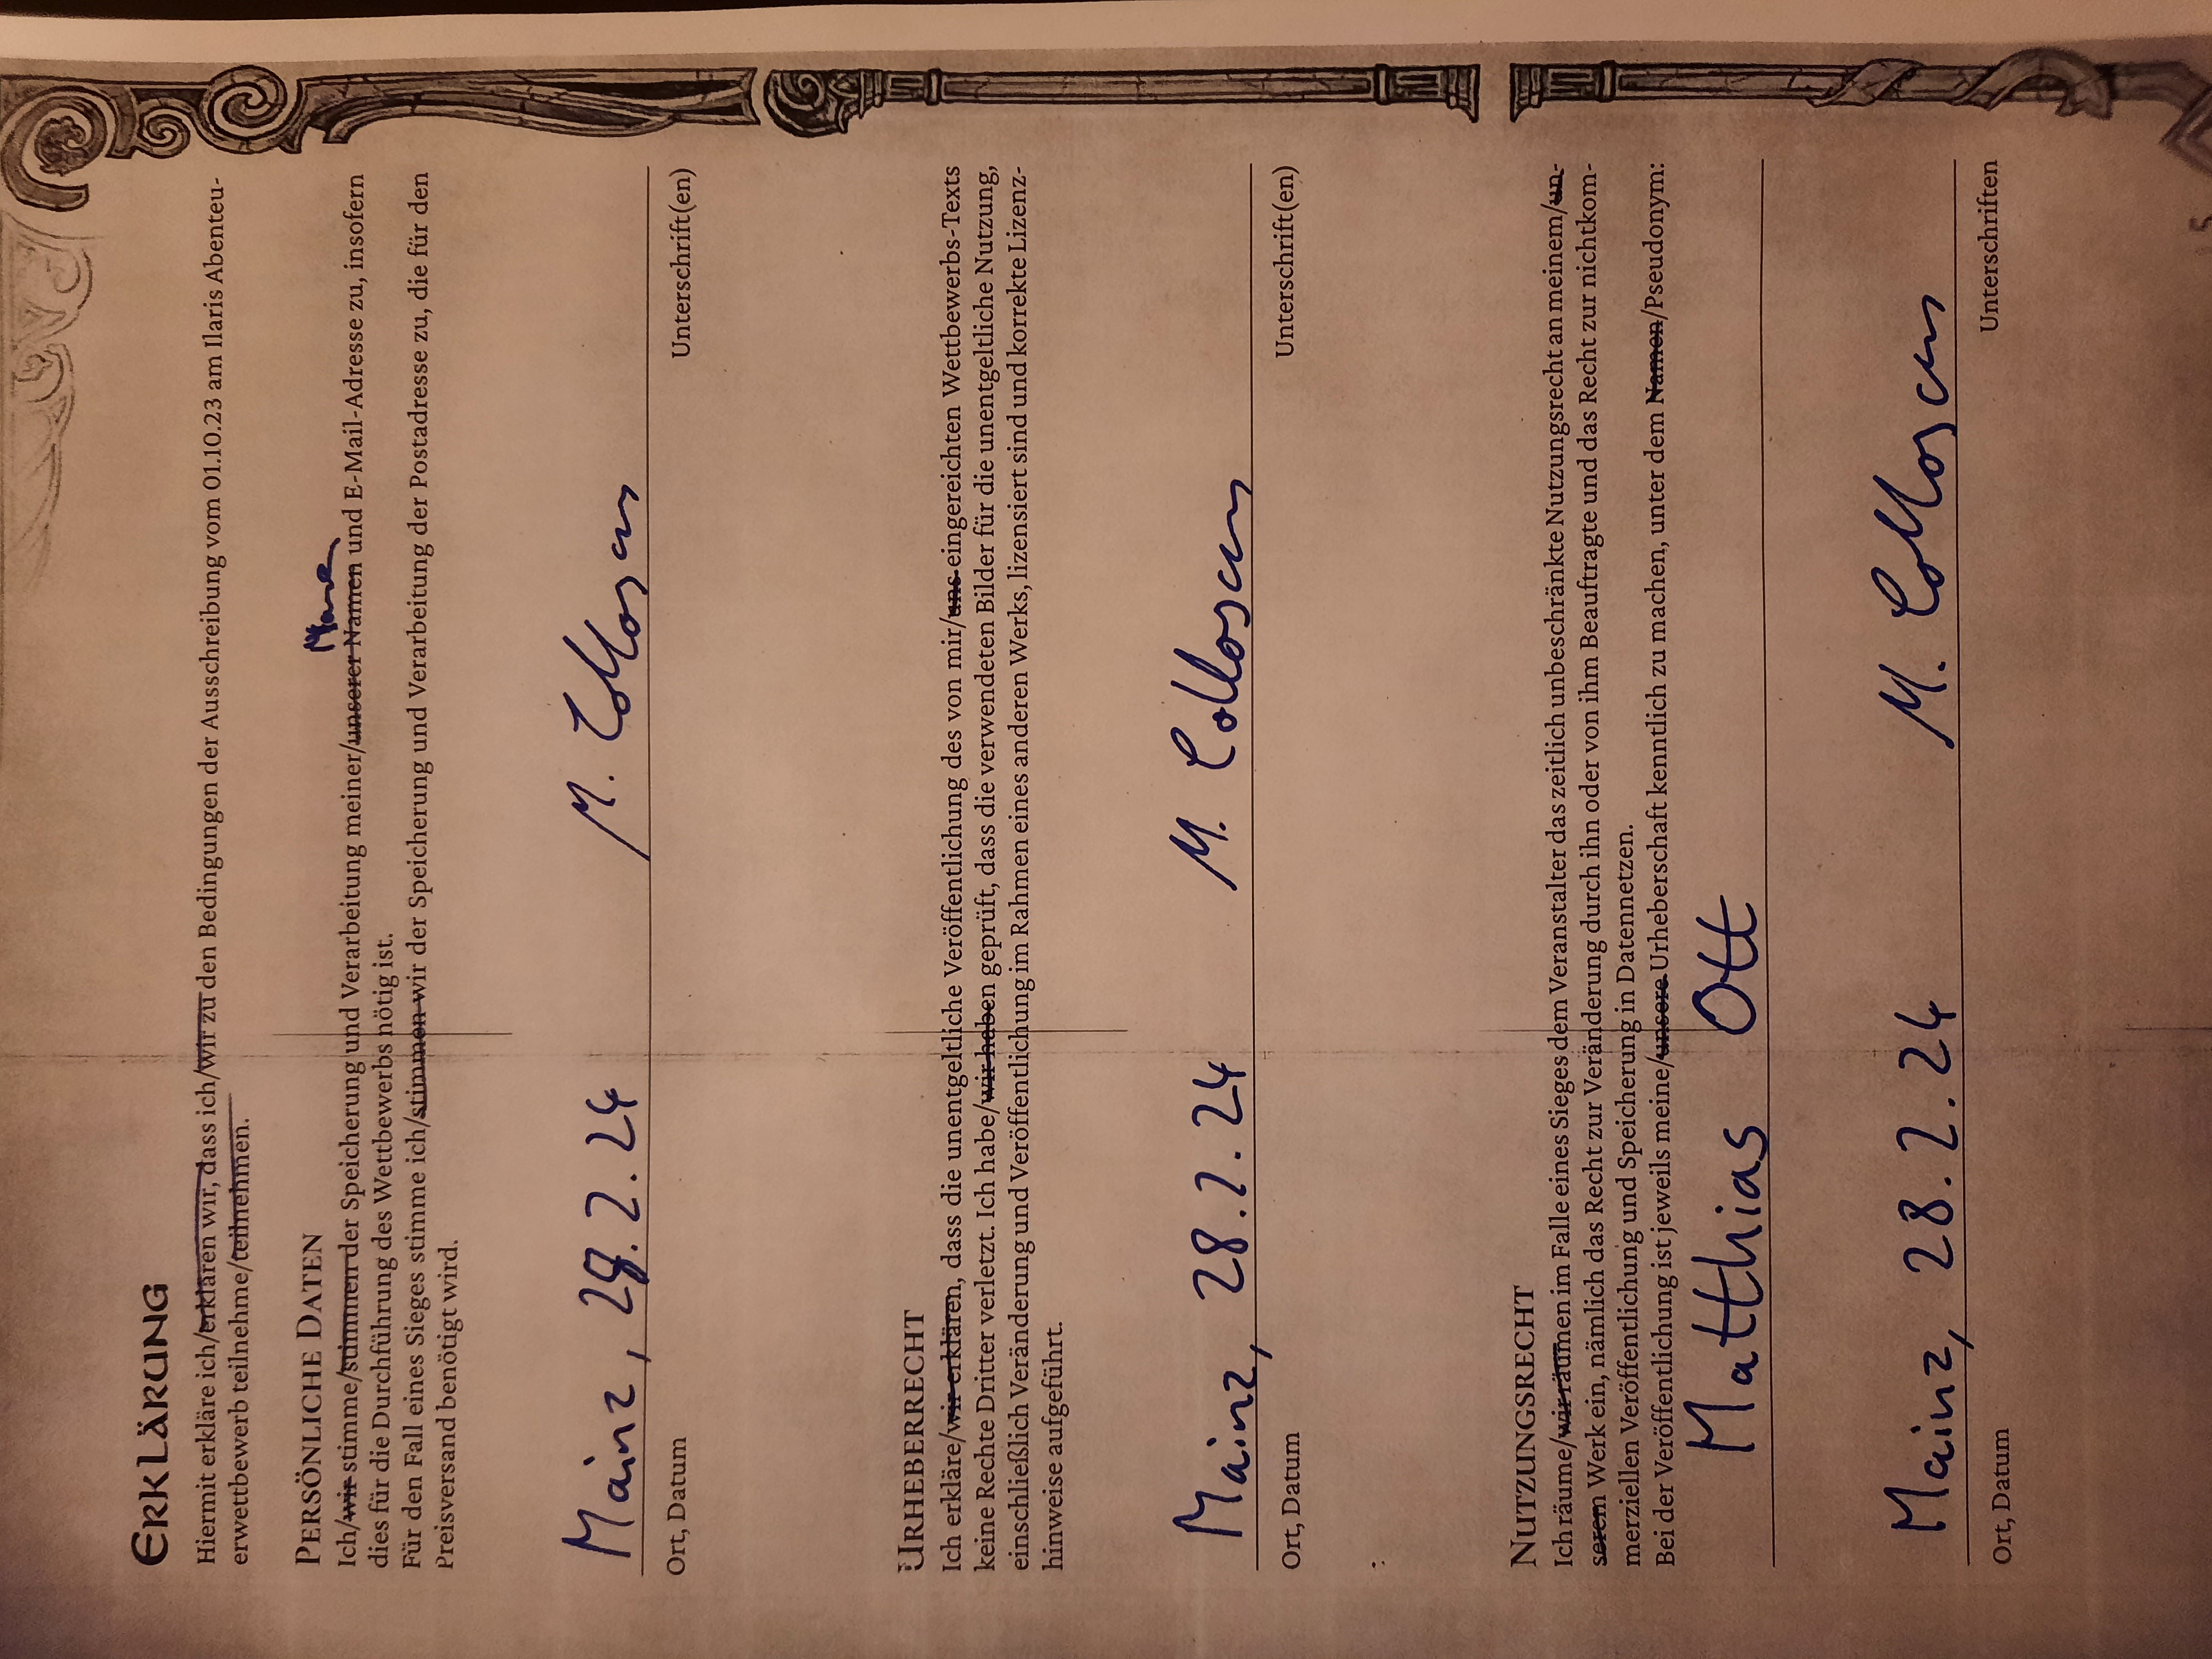 ERKLÄRUNG
Hiermit erkläre ich/erklären wir, dass ich/wir zu den Bedingungen der Ausschreibung vom 01.10.23 am Ilaris Abenteu-
erwettbewerb teilnehme/teilnehmen.
PERSÖNLICHE DATEN
Ich/wir stimme/stimmen der Speicherung und Verarbeitung meiner/unserer Namen und E-Mail-Adresse zu, insofern
dies für die Durchführung des Wettbewerbs nötig ist.
Für den Fall eines Sieges stimme ich/stimmen wir der Speicherung und Verarbeitung der Postadresse zu, die für den
Preisversand benötigt wird.
Mainz, 28.2.24 M.
Ort, Datum Unterschrift(en)
URHEBERRECHT
Ich erkläre/wir erklären, dass die unentgeltliche Veröffentlichung des von mir/uns eingereichten Wettbewerbs-Texts
keine Rechte Dritter verletzt. Ich habe/wir haben geprüft, dass die verwendeten Bilder für die unentgeltliche Nutzung,
einschließlich Veränderung und Veröffentlichung im Rahmen eines anderen Werks, lizensiert sind und korrekte Lizenz-
hinweise aufgeführt.
Mainz, 28.2.24 M.
Ort, Datum Unterschrift(en)
NUTZUNGSRECHT
Ich räume/wir räumen im Falle eines Sieges dem Veranstalter das zeitlich unbeschränkte Nutzungsrecht an meinem/un-
serem Werk ein, nämlich das Recht zur Veränderung durch ihn oder von ihm Beauftragte und das Recht zur nichtkom-
merziellen Veröffentlichung und Speicherung in Datennetzen.
Bei der Veröffentlichung ist jeweils meine/unsere Urheberschaft kenntlich zu machen, unter dem Namen/Pseudonym:
Matthias Ott
Mainz, 28.2.24 M.
Ort, Datum Unterschriften
5